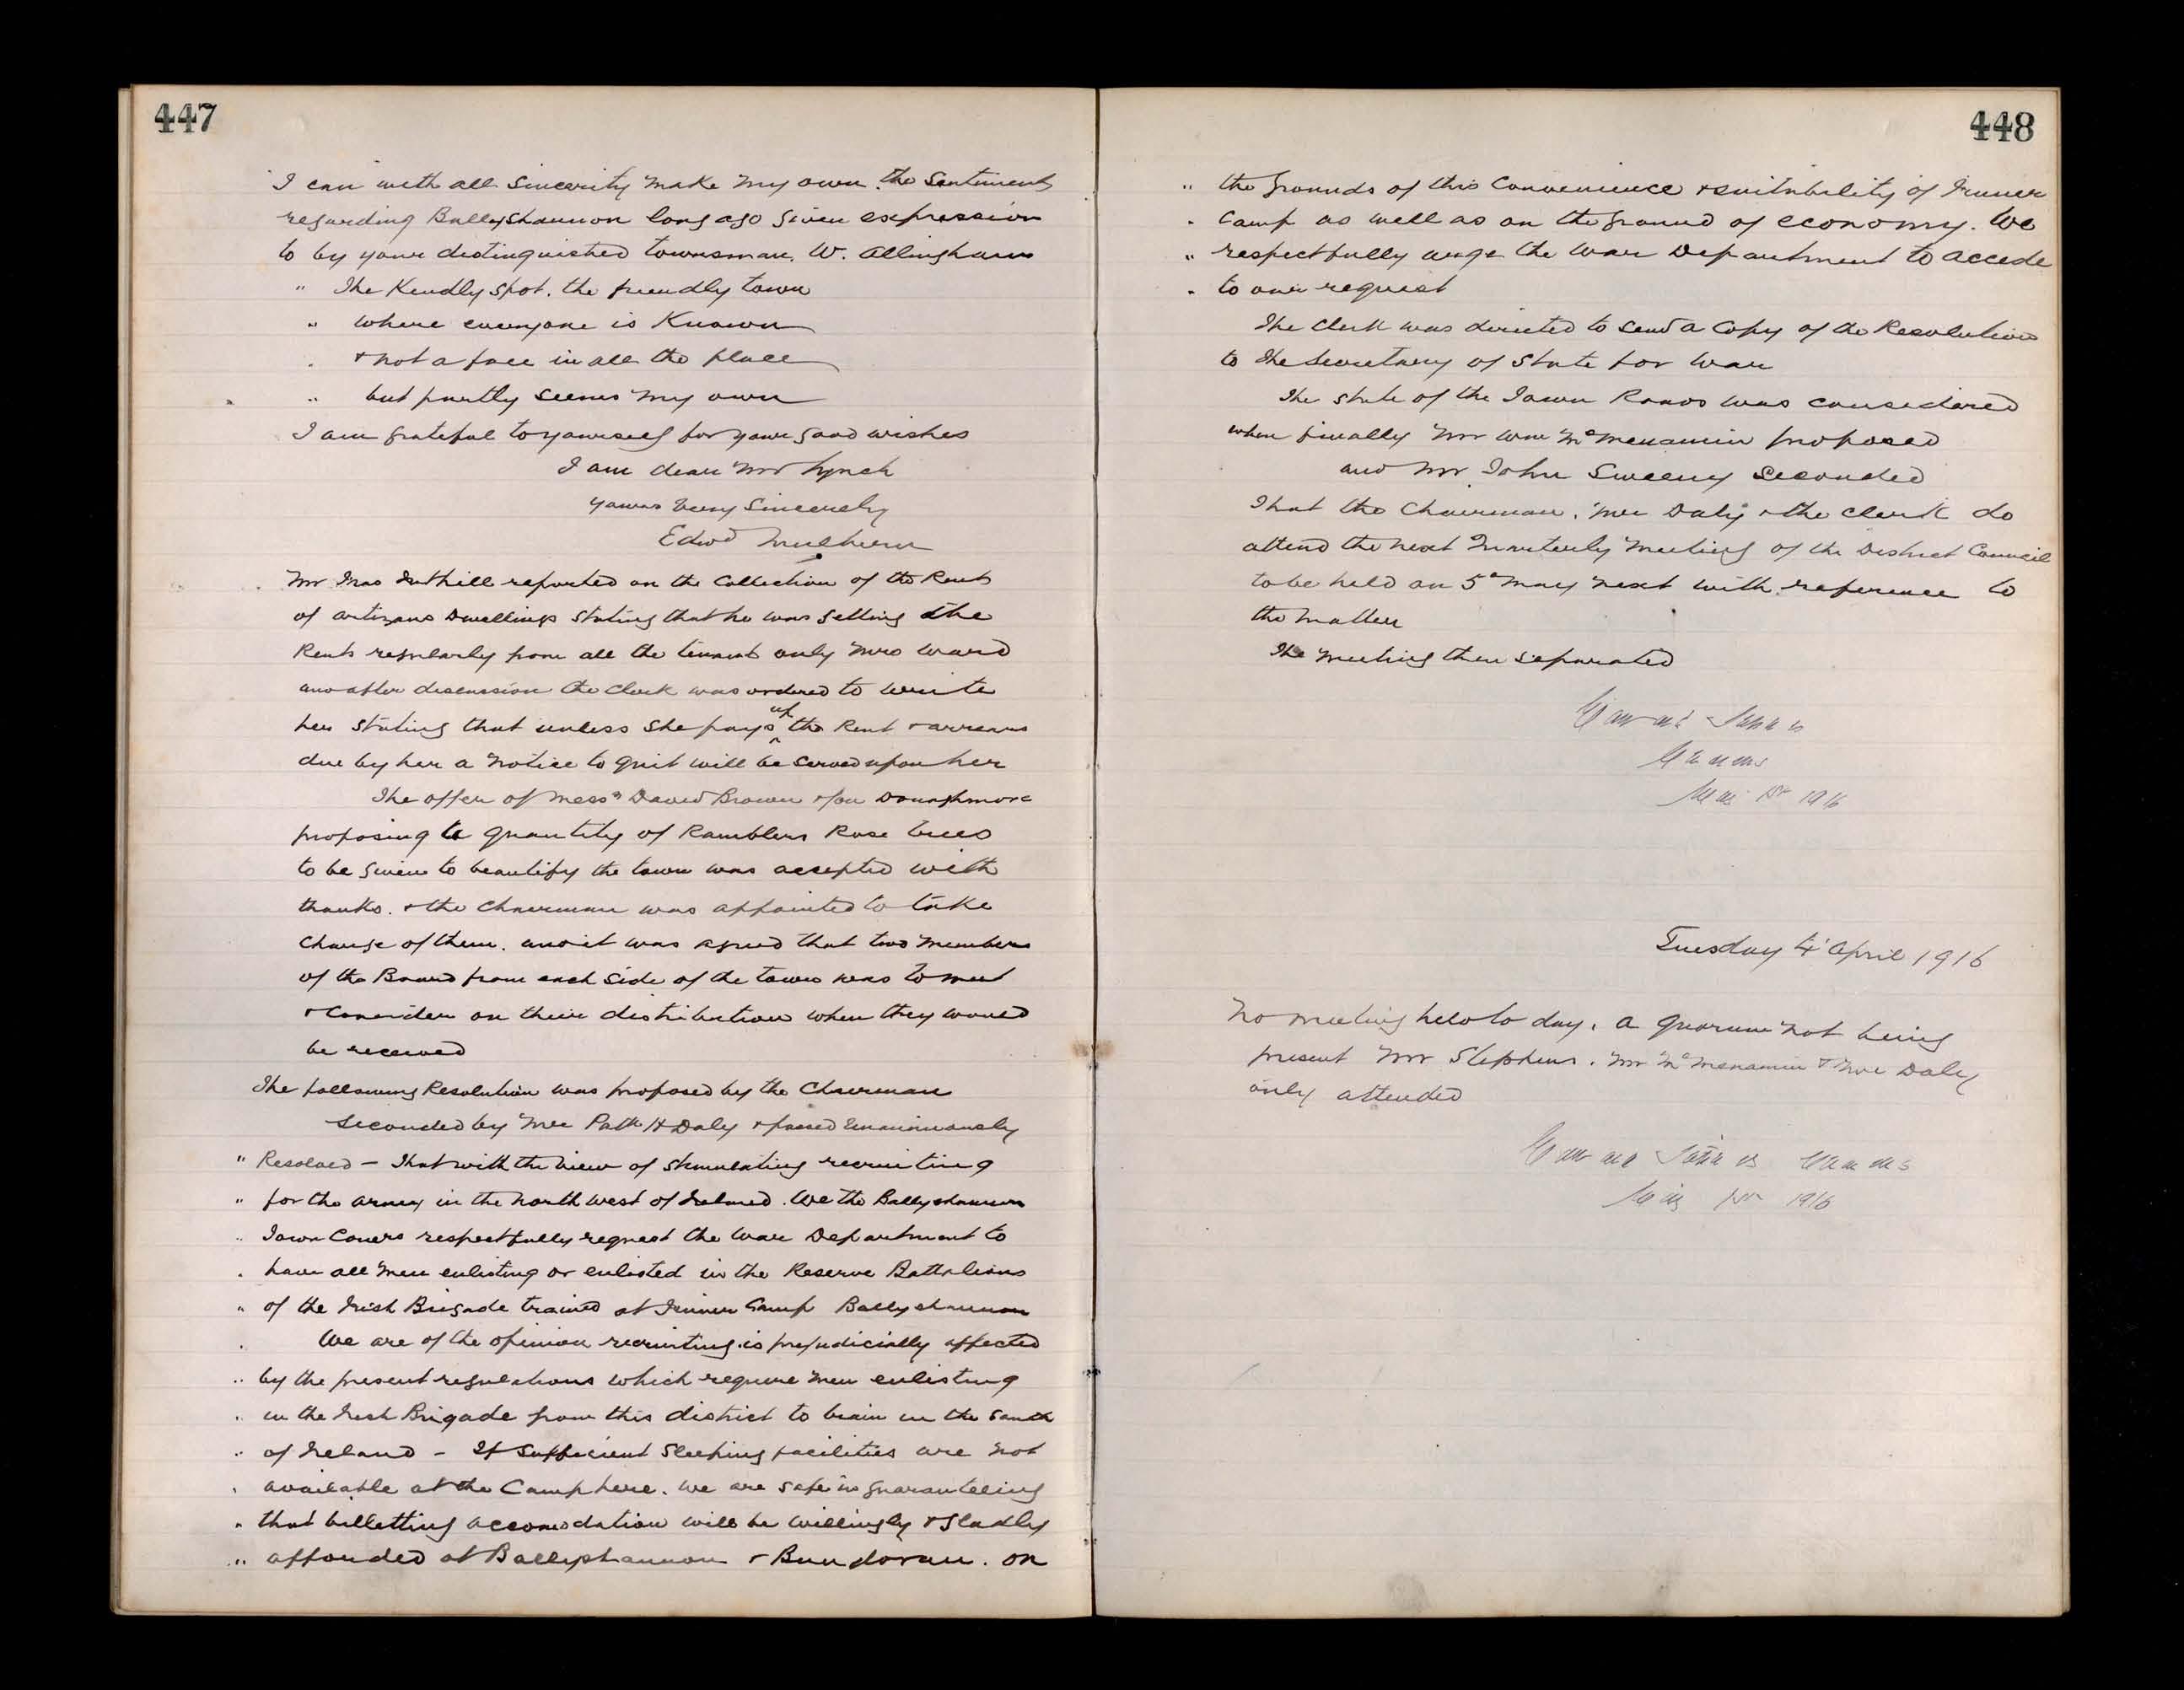 447
I can with all sincerity make my own the Sentiments
regarding Ballyshannon long ago given expression
to by your distinguished townsman, W. Allingham
" The Kindly spot, the friendly town
" where everyone is Known
" & not a face in all the place
" but partly seems my own
I am grateful to yourself for your good wishes
I am dear Mr Lynch
yours very sincerely
Edwd Mulhern
Mr Tuthill reported on the Collection of the Rents
of artizans Dwellings stating that he was getting the
Rents regularly from all the tenants only Mrs Ward
and after discussion the Clerk was ordered to write
her stating that unless she pays up the Rent & arrears
due by her a notice to quit will be served upon her
The offer of Messrs David Brown & Son Donaghmore
proposing a quantity of Ramblers Rose trees
to be given to beautify the town was accepted with
thanks. & the Chairman was appointed to take
charge of them. and it was agreed that two members
of the Board from each side of the town was to meet
& Consider on their distribution when they would
be received
The following Resolution was proposed by the Chairman
seconded by Mr Patk H Daly & passed Unanimously
" Resolved – That with the view of stimulating recruiting
" for the army in the north west of Ireland. We the Ballyshannon
" Town Comrs respectfully request the War Department to
" have all men enlisting or enlisted in the Reserve Battalions
" of the Irish Brigade trained at Finner Camp Ballyshannon
" We are of the opinion recruiting is prejudicially affected
" by the present regulations which require men enlisting
" in the Irish Brigade from this district to train in the South
" of Ireland – If sufficient sleeping facilities are not
" available at the Camp here. we are safe in guaranteeing
" that billetting accomodation will be willingly & gladly
" affonded at Ballyshannon & Bundoran. on
448
" the grounds of this Convenience & suitability of Finner
" Camp as well as on the ground of economy. We
" respectfully urge the War Department to accede
" to our request
The Clerk was directed to send a Copy of the Resolution
to the Secretary of State for War
The state of the Town Roads was considered
when finally Mr Wm McMenamin proposed
and Mr John Sweeny seconded
That the Chairman, Mr Daly & the Clerk do
attend the next Quarterly Meeting of the District Council
to be held on 5th May next with reference to
the matter
The meeting then separated
1916
Tuesday 4th April 1916
No meeting held to day, a quorum not being
present Mr Stephens, Mr McMenamin & Mr Daly
only attended
1916